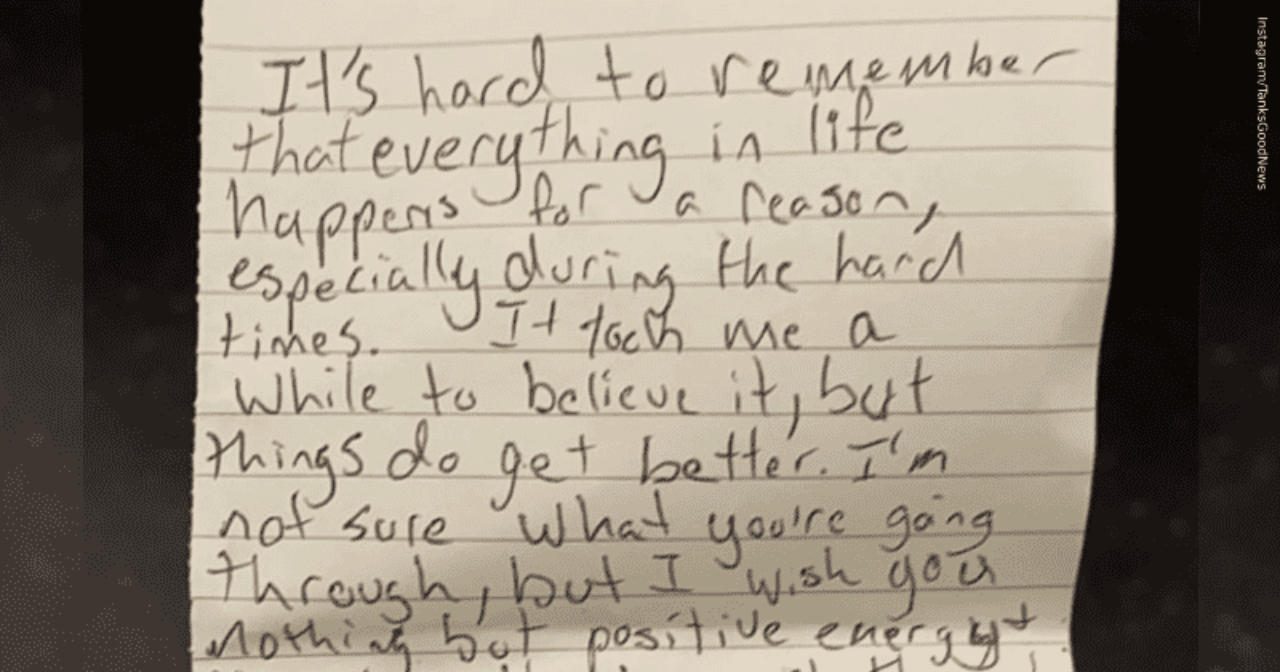 It's hard to remember
that everything in life
happens for a reason,
especially during the hard
times. It
me a
while to believe it, but
things do get better. I'm
not sure what you're going
through, but I wish you
nothing but positive energy +
Instagram/TanksGoodNews